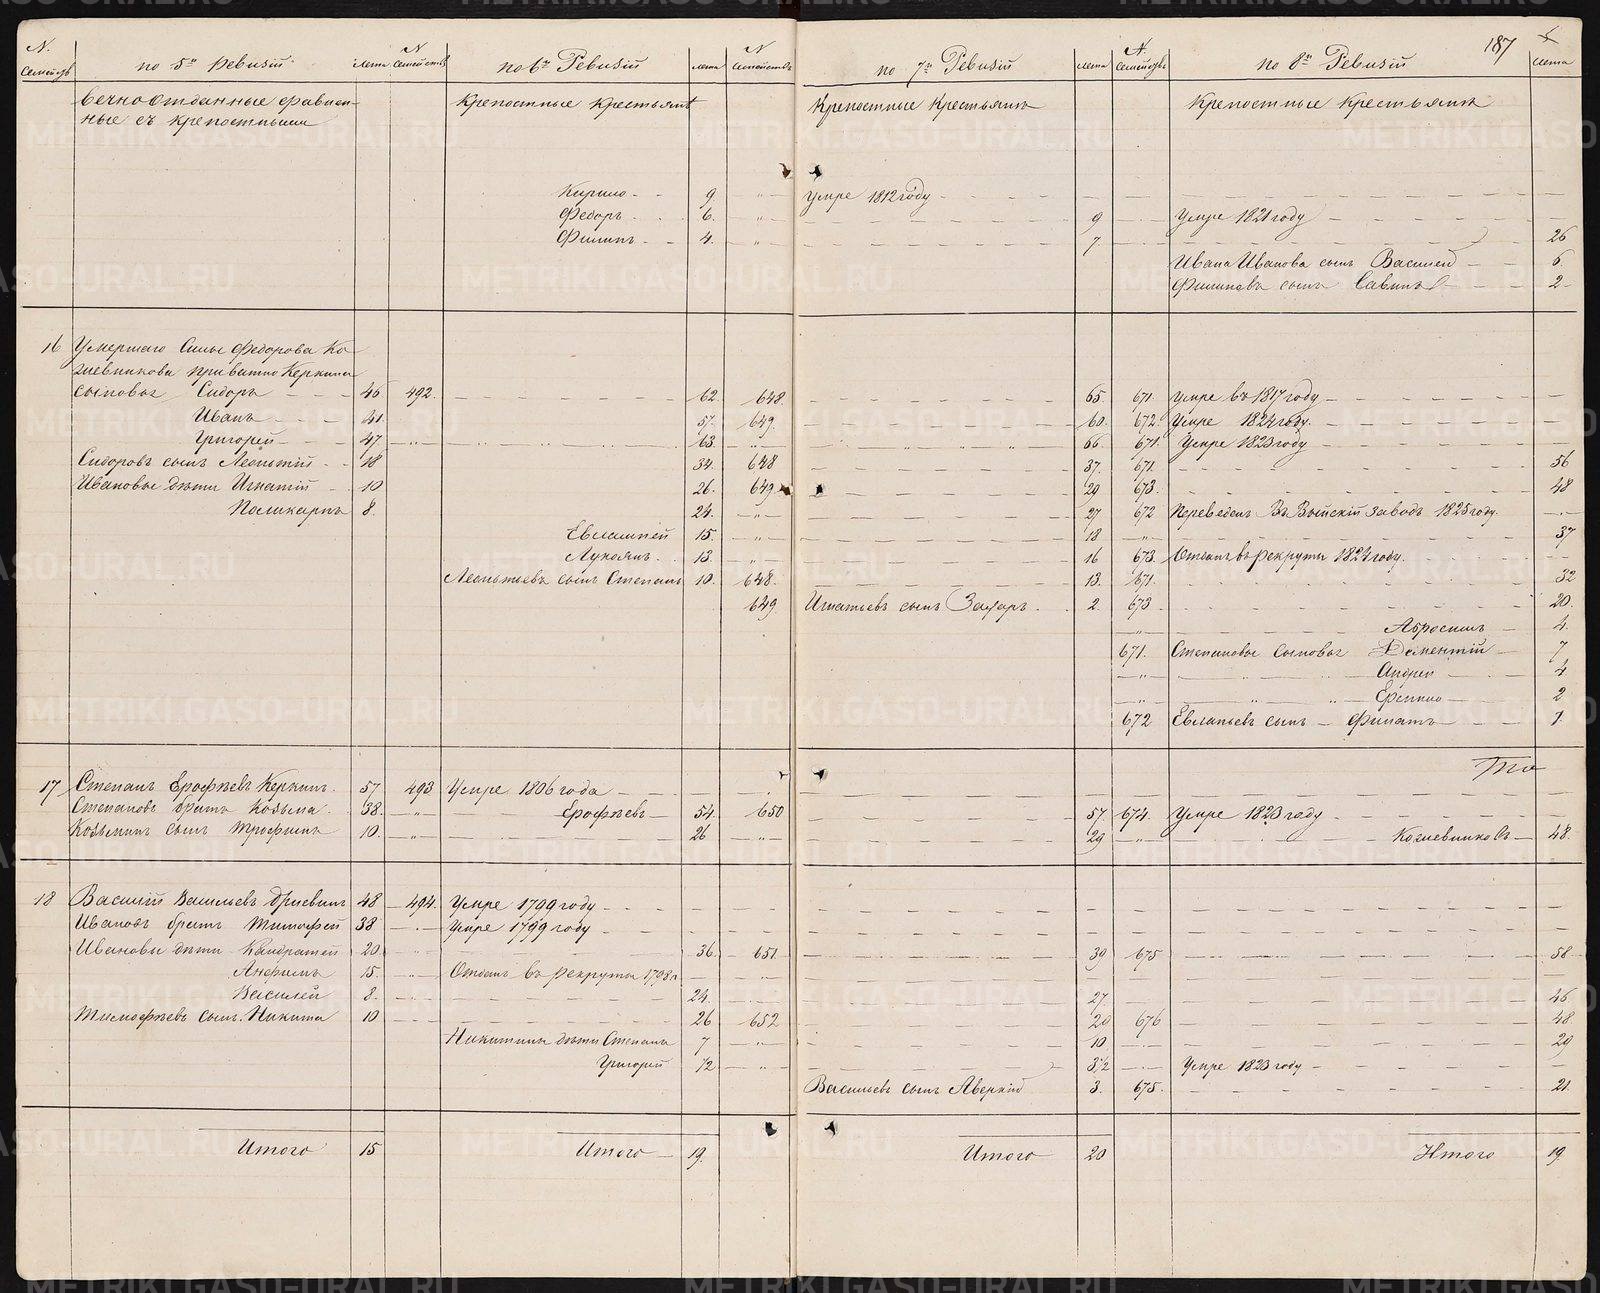 187
N. Семействъ по 5й Ревизіи Лета N Семействъ по 6й Ревизіи Лета N Семействъ по 7й Ревизіи Лета N. Семействъ по 8й Ревизіи Лета
вечноотданные сравнен- Крепостные Крестьяне Крепостные Крестьяне Крепостные Крестьяне
ные съ крепостными
Кирило 9. " Умре 1812 году
Федоръ 6. " 9 Умре 1821 году
Филипъ 4. " 7 26
Ивана Иванова сынъ Василей 6.
Филиповъ сынъ Савинъ 2
16 Умершаго Силы Федорова Ко-
жевникова приватно Керкина
сыновья Сидоръ 46 492. 62 648. 65. 671. Умре въ 1817 году
Иванъ 41. 57. 649. 60. 672. Умре 1824 году.
Григорей 47 " 63 " 66. 671. Умре 1823 году
Сидоровъ сынъ Леонтій 18 34. 648 37. 671. 56
Ивановы дѣти Игнатій 10 26. 649. 29 673. 48
Поликарпъ 8. 24. " 27 672 Переведенъ Въ Выйскій заводъ 1825 году.
Евлампей 15. " 18 " 37
Лукоянъ. 13. " 16 673. Отданъ въ рекруты 1824 году.
Леонтьевъ сынъ Степанъ 10. 648. 13. 671. 32
649. Игнатьевъ сынъ Захаръ. 2. 673 20.
" Абросимъ 4.
671. Степановы сыновья Доментій 7
" Андрей 4
" Ерсмило 2
672 Евлапьевъ сынъ Филатъ 1.
17 Степанъ Ерофѣевъ Керкинъ. 57 493 Умре 1806 года
Степановъ братъ Козьма. 38. " Ерофѣевъ 54. 650 57. 674. Умре 1823 году
Козьминъ сынъ Трофимъ 10. " 26 " 29 " Кожевниковъ 48.
18 Василій Васильевъ 48 494. Умре 1799 году
Ивановъ братъ Тимофей 38 Умре 1799 году
Ивановы дѣти Кондратей 20. 36. 651 39 675 58
Анфимъ 15. " Отданъ въ рекруты 1798 г.
Василей 8. 24. 27. 46
Тимофѣевъ сынъ. Никита 10 26 652 29 676 48
Никитины дѣти Степанъ 7 " 10 29
Григорей 1/2 " 3 1/2 Умре 1823 году
Васильевъ сынъ Аверкій 3. 675. 21.
Итого 15 Итого 19. Итого 20 Итого 19
METRIKI.GASO-URAL.RU